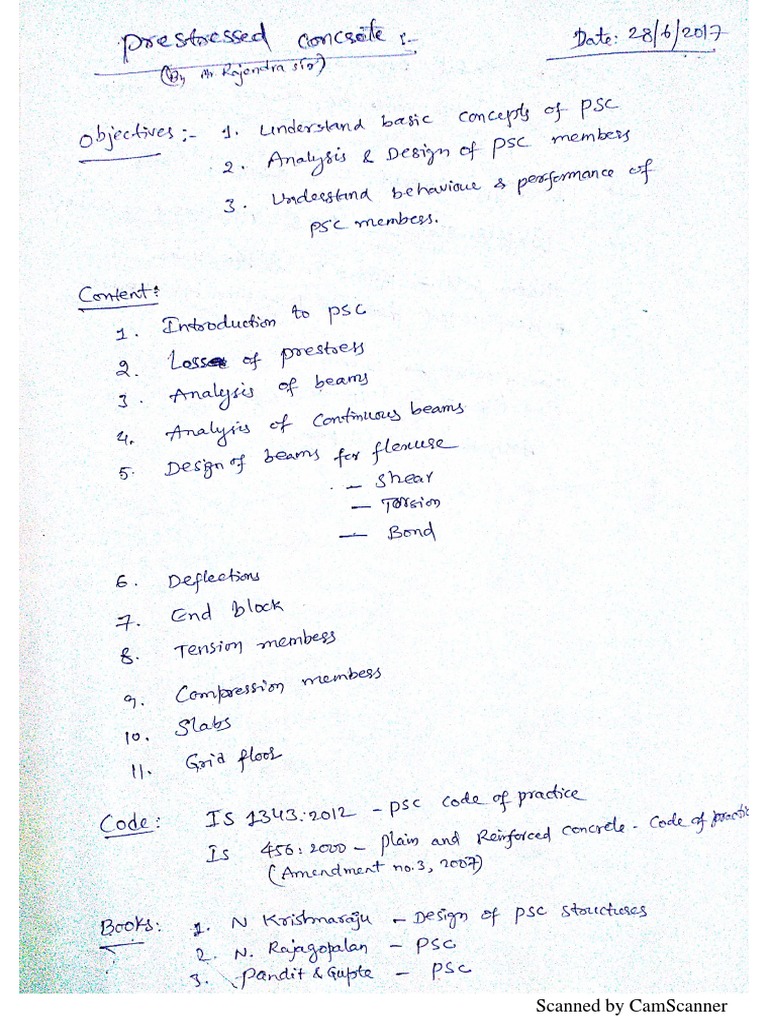 Prestressed concrete :-
Date: 28/6/2017
(By Mr. Rajendra sir)
Objectives :- 1. Understand basic concepts of PSC
2. Analysis & Design of PSC members
3. Understand behaviour & performance of
PSC members.
Content:
1. Introduction to PSC
2. Losses of prestress
3. Analysis of beams
4. Analysis of Continuous beams
5. Design of beams for flexure
- Shear
- Torsion
- Bond
6. Deflections
7. End block
8. Tension members
9. Compression members
10. Slabs
11. Grid floor
Code: IS 1343:2012 - PSC code of practice
IS 456:2000 - Plain and Reinforced concrete - Code of practic
(Amendment no.3, 2007)
Books: 1. N Krishnaraju - Design of PSC structures
2. N. Rajagopalan - PSC
3. Pandit & Gupta - PSC
Scanned by CamScanner